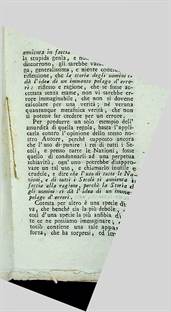 amicata in faccia
la stupida gente, e non
discorrono, gli sarebbe
ga, generalissima, e niente
riflessione, che la storia degli uomini ci
dà l'idea di un immenso pelago d'erro-
ri: rifletto e ragione, che se fosse ac-
cettata senza esame, non vi sarebbe er-
rore immaginabile, che non si dovesse
calcolare per una verità; nè veruna
quantunque metafisica verità, che non
si potesse far credere per un errore.
Per produrre un solo esempio dell'
assurdità di questa regola, basta l'appli-
carla contro l'opinione dello stesso no-
stro Autore, perchè supposto ancora
che l'uso di punire i rei di tutti i Se-
coli, e presso tutte le Nazioni, fosse
quello di condannarli ad una perpetua
schiavitù, ognuno potrebbe disappro-
vare un tal uso, e chiamarlo inutile e
crudele, e dire che l'uso di tutte le Na-
zioni, e di tutti i Secoli si annienta in
faccia alla ragione, perchè la Storia de-
gli uomini ci dà l'idea di un immenso
pelago d'errori.
Cotesta per altro è una specie di
va, che benchè sia la più debole,
così d'una specie la più anfibia di
te ce ne possiamo immaginare,
contiene una tale appa
forza, che ha sorpresi, ed